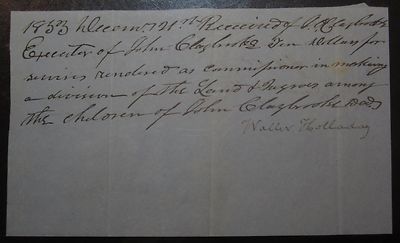 1853 Decemr 21st Received of J. Claybrook
Executor of John Claybrooke Ten Dollars for
services rendered as commissioner in making
a division of the Land & Negroes among
the children of John Claybrooke Decd
Waller Holladay